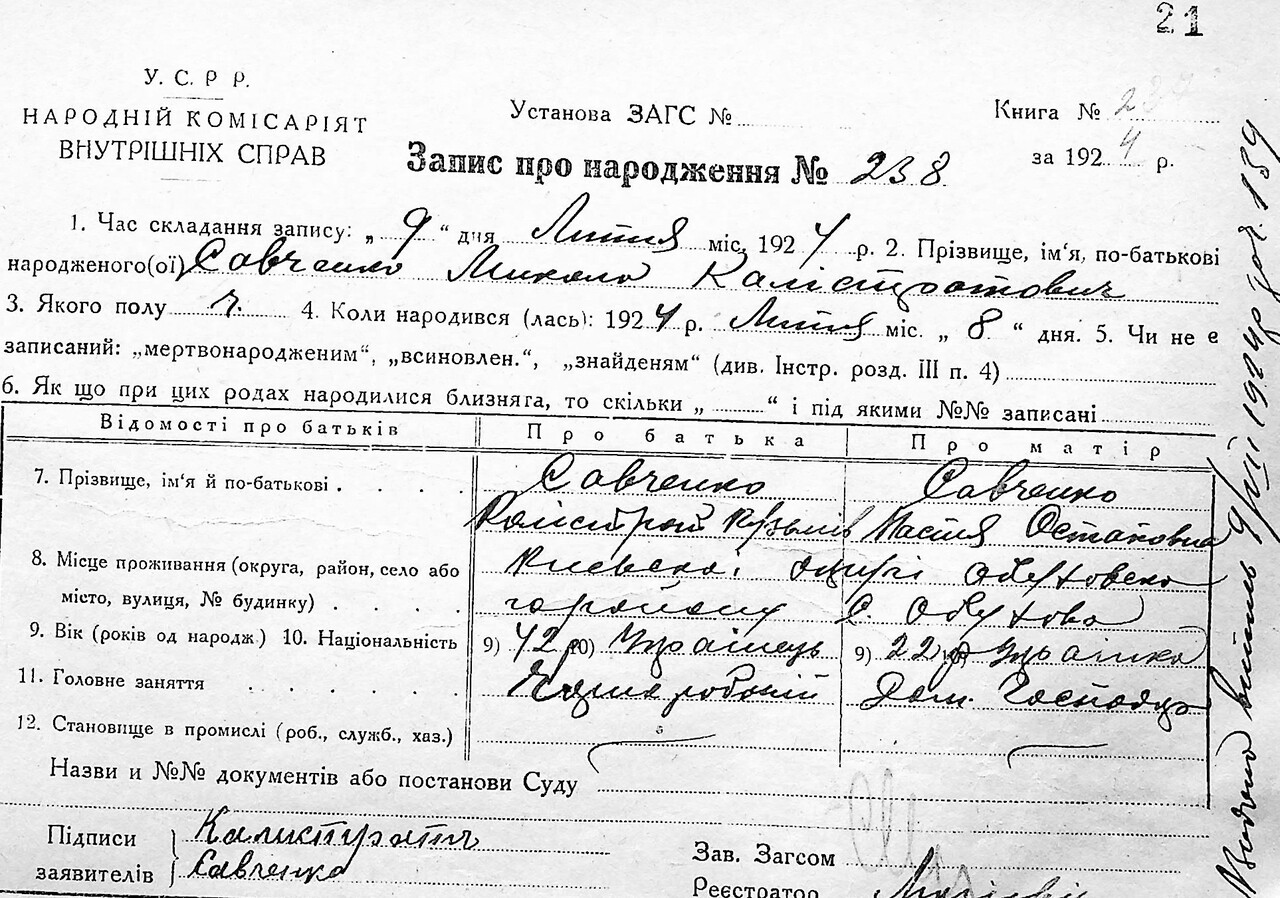 21
У. С. Р Р.
НАРОДНІЙ КОМІСАРІЯТ
ВНУТРІШНІХ СПРАВ
Установа ЗАГС №
Книга № 237
за 1924 р.
Запис про народження № 238
1. Час складання запису: „ 9 “ дня Липня міс. 1924 р. 2. Прізвище, ім‘я, по-батькові
народженого(ої) Савченко Микола Калістратович
3. Якого полу ч. 4. Коли народився (лась): 1924 р. Липня міс. „ 8 “ дня. 5. Чи не є
записаний: „мертвонародженим“, „всиновлен.“, „знайденям“ (див. Інстр. розд. III п. 4)
6. Як що при цих родах народилися близняга, то скільки „ “ і під якими №№ записані
Відомості про батьків Про батька Про матір
7. Прізвище, ім‘я й по-батькові . . . . Савченко Савченко
Калістрат Кузьмів Настия Остаповна
8. Місце проживання (округа, район, село або Киевскоі округи Обуховско
місто, вулиця, № будинку) . . . . го району С. Обухова
9. Вік (років од народж.) 10. Національність 9) 42 10) Українець 9) 22 10) Українка
11. Головне заняття . . . . . . Чорноробочій Дом. Господар
12. Становище в промислі (роб., служб., хаз.)
Назви и №№ документів або постанови Суду
Підписи заявителів
Калистратъ
Савченко
Зав. Загсом
Реєстратор
Видано витяг 9/VII 1924 р. 139